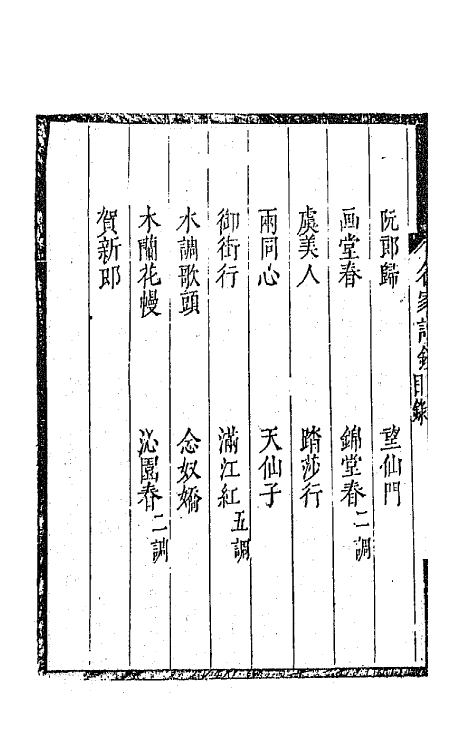 名家詞鈔目錄
阮郎歸　望仙門
画堂春　錦堂春二調
虞美人　踏莎行
兩同心　天仙子
御街行　滿江紅五調
水調歌頭　念奴嬌
木蘭花慢　沁園春二調
賀新郎